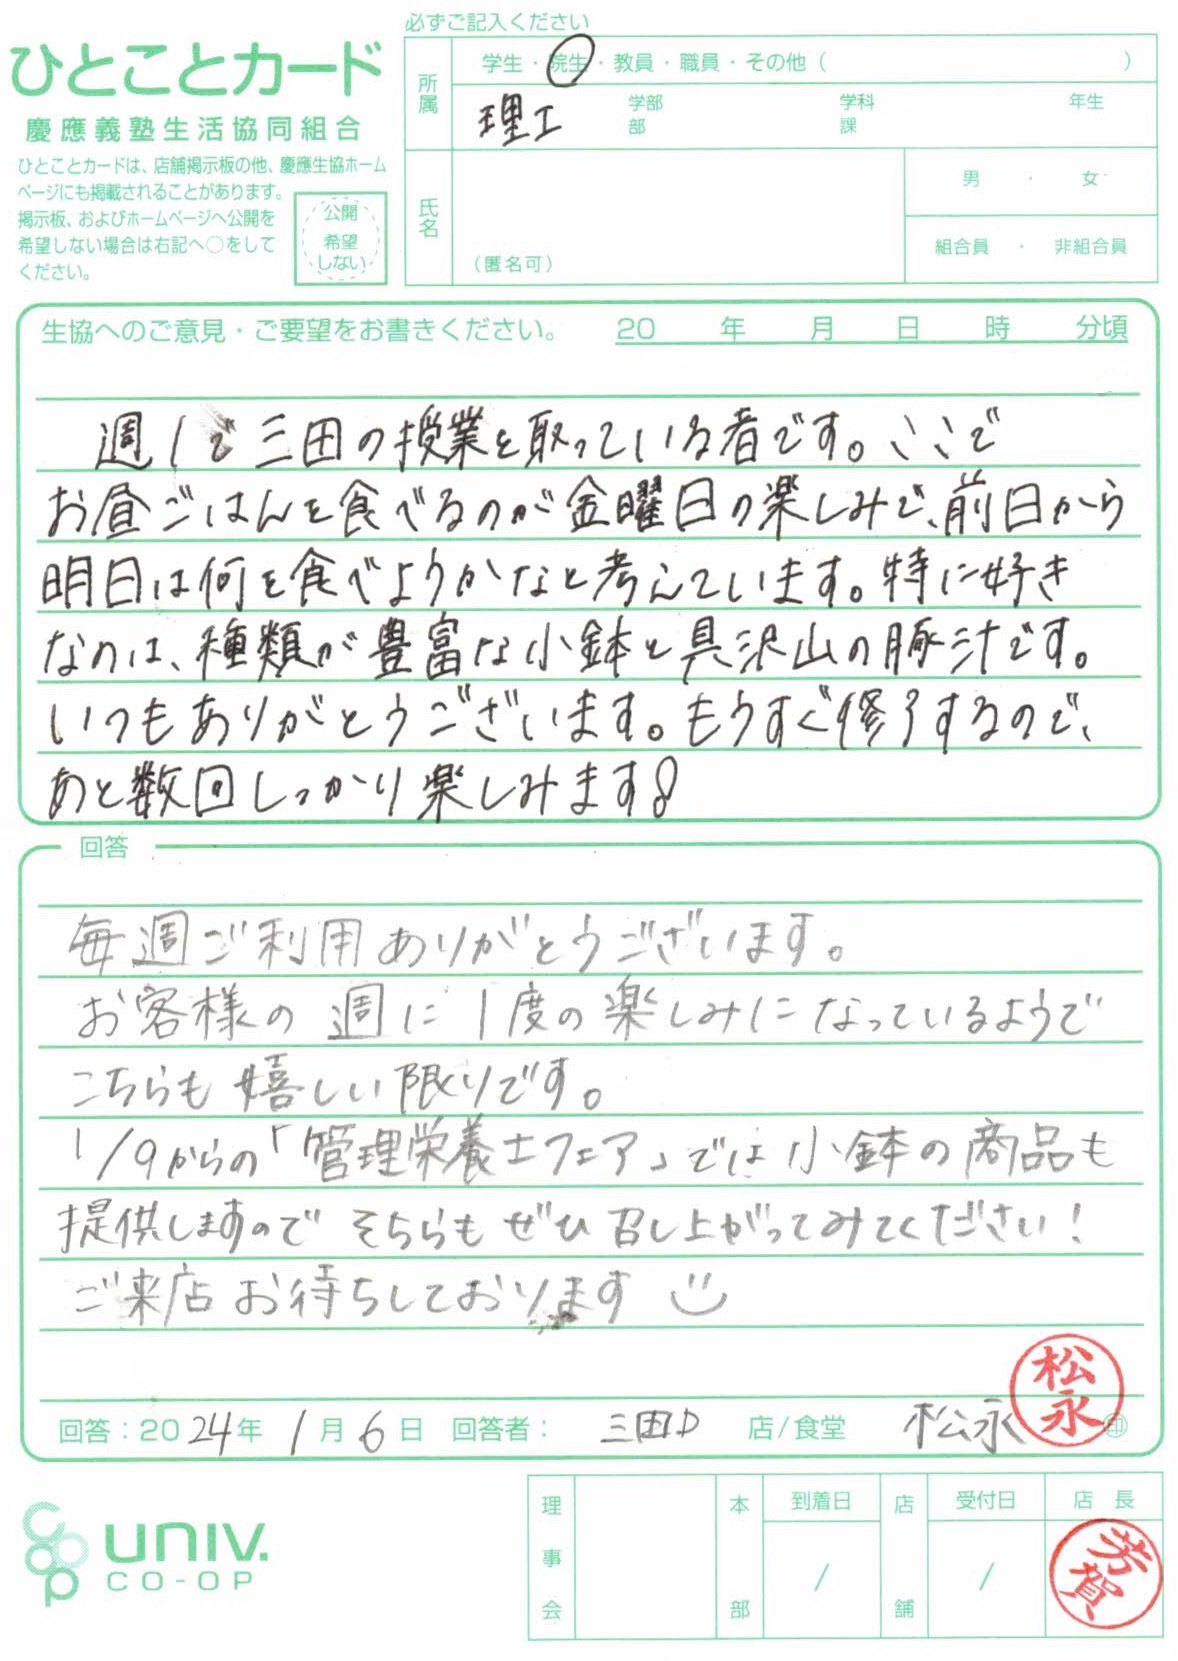 必ずご記入ください
ひとことカード
慶應義塾生活協同組合
ひとことカードは、店舗掲示板の他、慶應生協ホーム
ページにも掲載されることがあります。
掲示板、およびホームページへ公開を
希望しない場合は右記へ○をして
ください。
公開
希望
しない
所属
学生・院生・教員・職員・その他（　　）
理工 学部 学科 年生
部 課
氏名
（匿名可）
男 ・ 女
組合員 ・ 非組合員
生協へのご意見・ご要望をお書きください。 20 年 月 日 時 分頃
週1で三田の授業を取っている者です。ここで
お昼ごはんを食べるのが金曜日の楽しみで、前日から
明日は何を食べようかなと考えています。特に好き
なのは、種類が豊富な小鉢と具沢山の豚汁です。
いつもありがとうございます。もうすぐ修了するので、
あと数回しっかり楽しみます
回答
毎週ご利用ありがとうございます。
お客様の週に1度の楽しみになっているようで
こちらも嬉しい限りです。
1/9からの「管理栄養士フェア」では小鉢の商品も
提供しますので そちらもぜひ召し上がってみてください!
ご来店お待ちしております
回答：2024年 1月6日 回答者： 三田 店/食堂 松永 印
松永
UNIV.
CO-OP
理事会
本部
到着日
/
店舗
受付日
/
店長
芳賀